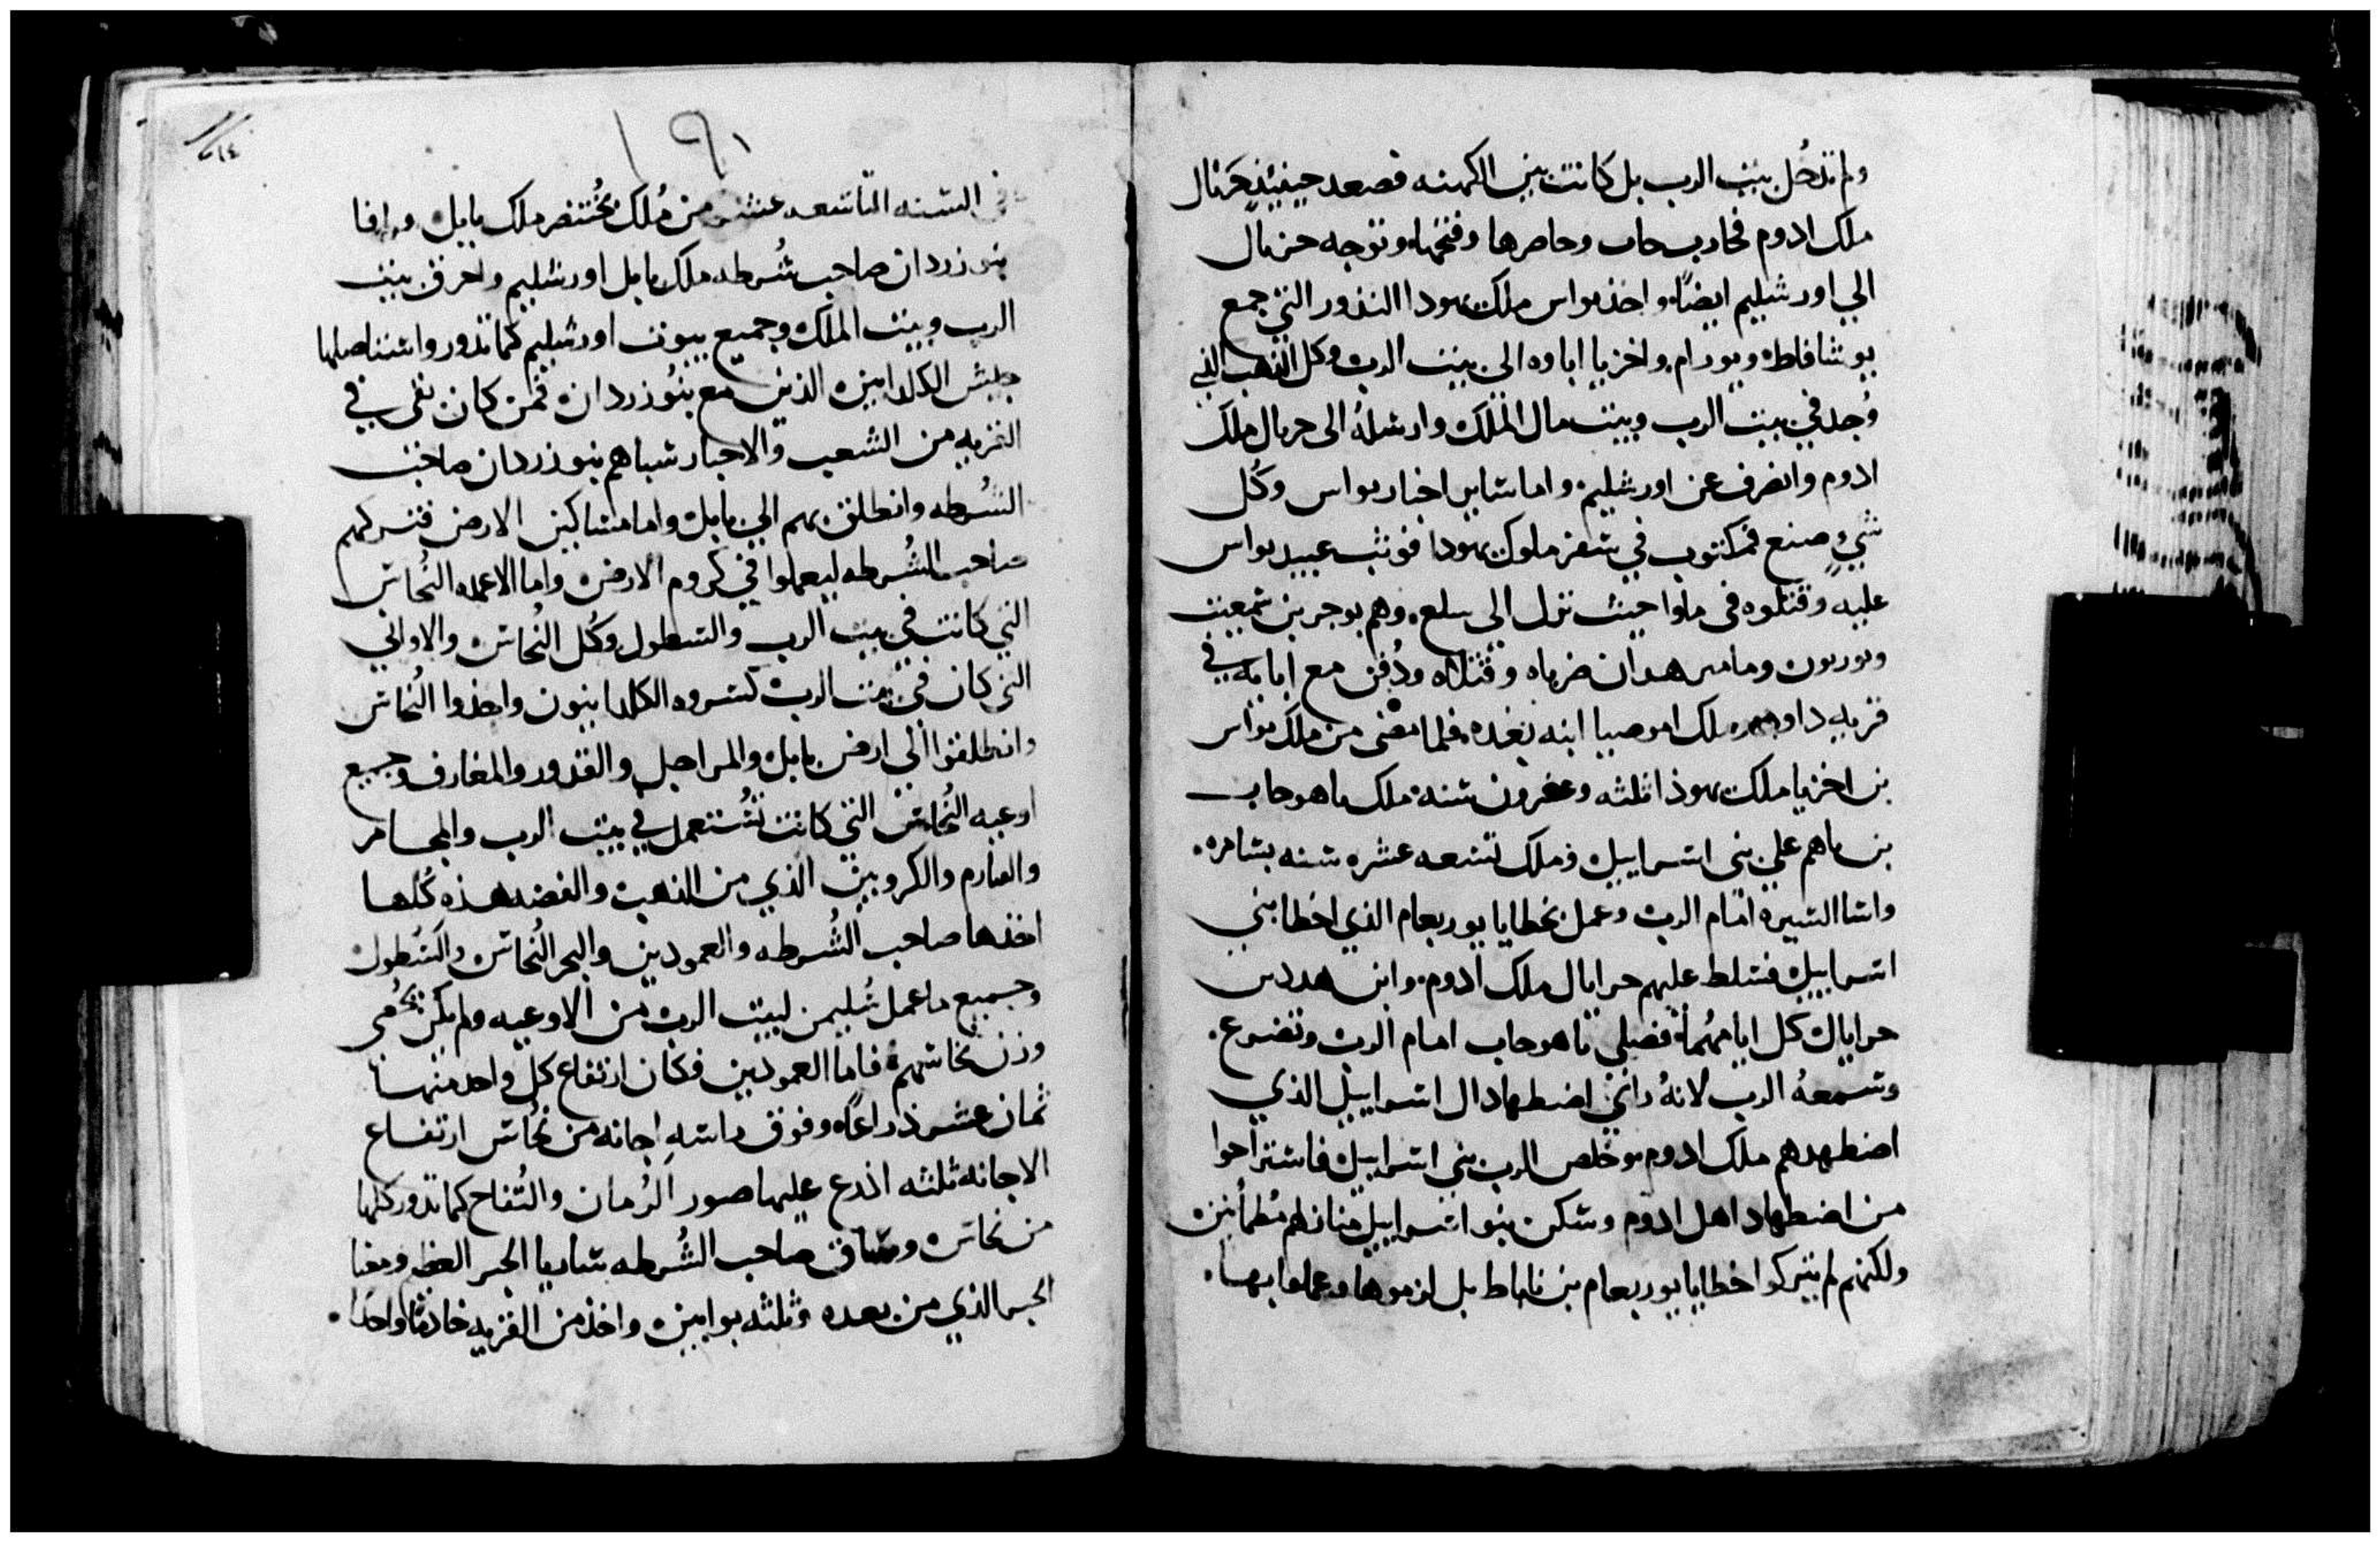 ولم تدخل بيت الرب بل كانت بين الكهنه فصعد حينيذ حزيال
ملك ادوم فحارب جات وحاصرها وفتحها وتوجه حزيال
الي اورشليم ايضًا واخذ يواس ملك يهودا النذور التي جمع
يوشافاط ويورام واخزيا اباوه الي بيت الرب وكل الذهب الذي
وُجد في بيت الرب وبيت مال الملك وارسلهُ الى حزيال ملك
ادوم وانصرف عن اورشليم واما ساير اخبار يواس وكُل
شيءٍ صنع فمكتوب في سفر ملوك يهودا فوثب عبيد يواس
عليه وقتلوه في ملوا حيث نزل الى سلع وهم يوجر بن شمعيت
ضرباه وقتلاه ودُفن مع ابايه في
قريه داوود وملك اموصيا ابنه بعده فلما مضى من ملك يواس
بن اخزيا ملك يهوذا ثلثه وعشرون سنه ملك ياهوحاب
بن ياهم علي بني اسراييل وملك تسعه عشره سنه بشامره
واسا السيره امام الرب وعمل بخطايا يوربعام الذي اخطا بني
اسراييل فسلط عليهم حرايال ملك ادوم وابن هدد بن
حرايال كل ايامهما فصلي ياهوحاب امام الرب وتضرع
وسمعهُ الرب لانهُ راي اضطهاد ال اسراييل الذي
اضطهدهم ملك ادوم وخلص الرب بني اسراييل فاستراحوا
من اضطهاد اهل ادوم وسكن بنو اسراييل منازلهم مُطمانين
ولكنهم لم يتركوا خطايا يوربعام بن ناباط بل لزموها وعملوا بها
١٩١
في السنه التاسعه عشر من مُلك بُختنصر ملك بابل وافا
نبوزردان صاحب شُرطه ملك بابل اورشليم واحرق بيت
الرب وبيت الملك وجميع بيوت اورشليم كما تدور واستاصلها
جيش الكلدانيين الذين مع نبُوزردان فمن كان بقي في
القريه من الشعب والاحبار سباهم نبوزردان صاحب
الشُرطه وانطلق بهم الي بابل واما مساكين الارض فتركهم
صاحب الشُرطه ليعملوا في كروم الارض واما الاعمده النُحاس
التي كانت في بيت الرب والسطول وكُل النُحاس والاواني
التي كان في بيت الرب كسروه الكلدانيون واخذوا النُحاس
وانطلقوا الي ارض بابل والمراجل والقدور والمغارف وجميع
اوعيه النُحاس التي كانت تُستعمل في بيت الرب والمجامر
والكروبين الذي من الذهب والفضه هذه كُلها
اخذها صاحب الشُرطه والعمودين والبحر النُحاس والسُطول
وجميع ما عمل سُليمن لبيت الرب من الاوعيه ولم يكن يُحصى
وزن نحاسهم فاما العمودين فكان ارتفاع كل واحد منهما
ثمان عشر ذراعًا وفوق راسه اجانه من نُحاس ارتفاع
الاجانه ثلثه اذرع عليها صور الرُمان والتُفاح كما تدور كلها
من نحاس وساق صاحب الشُرطه سرايا الحبر العظيم وصفنيا
الحبر الذي من بعده وثلثه بوابين واخذ من القريه خادمًا واحدًا